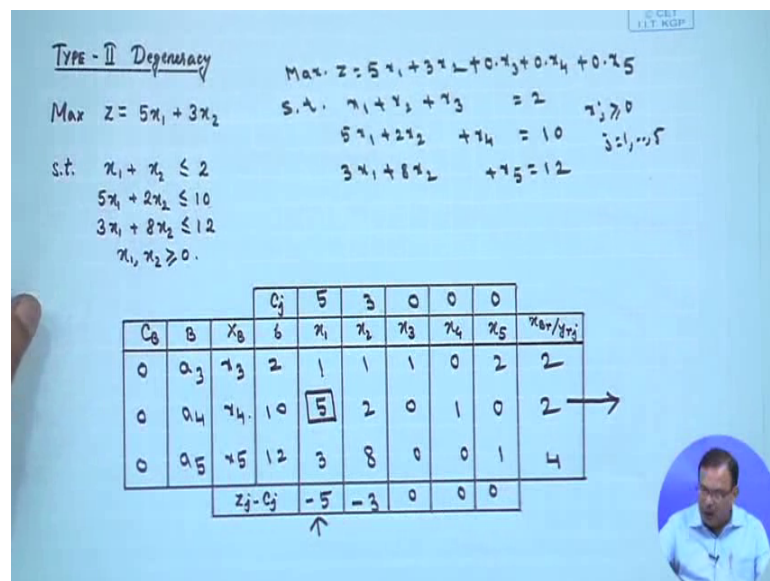 © CET
I.I.T. KGP
TYPE - II Degeneracy
Max Z = 5x₁ + 3x₂
s.t. x₁ + x₂ ≤ 2
5x₁ + 2x₂ ≤ 10
3x₁ + 8x₂ ≤ 12
x₁, x₂ ≥ 0.
Max. Z = 5x₁ + 3x₂ + 0.x₃ + 0.x₄ + 0.x₅
s.t. x₁ + x₂ + x₃ = 2 xⱼ ≥ 0
5x₁ + 2x₂ + x₄ = 10 j=1,..,5
3x₁ + 8x₂ + x₅ = 12
Cj 5 3 0 0 0
C_B B X_B b x₁ x₂ x₃ x₄ x₅ x_Br/y_rj
0 a₃ x₃ 2 1 1 1 0 2 2
0 a₄ x₄. 10 5 2 0 1 0 2 →
0 a₅ x₅ 12 3 8 0 0 1 4
Zj - Cj -5 -3 0 0 0
↑